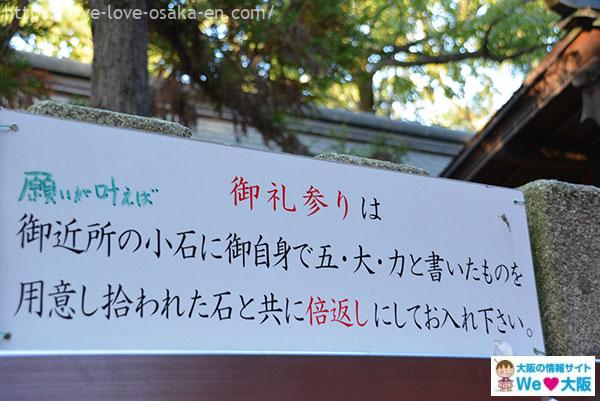 https://we-love-osaka-en.com/
願いが叶えば 御礼参りは
御近所の小石に御自身で五・大・力と書いたものを
用意し拾われた石と共に倍返しにしてお入れ下さい。
大阪の情報サイト
We♥大阪